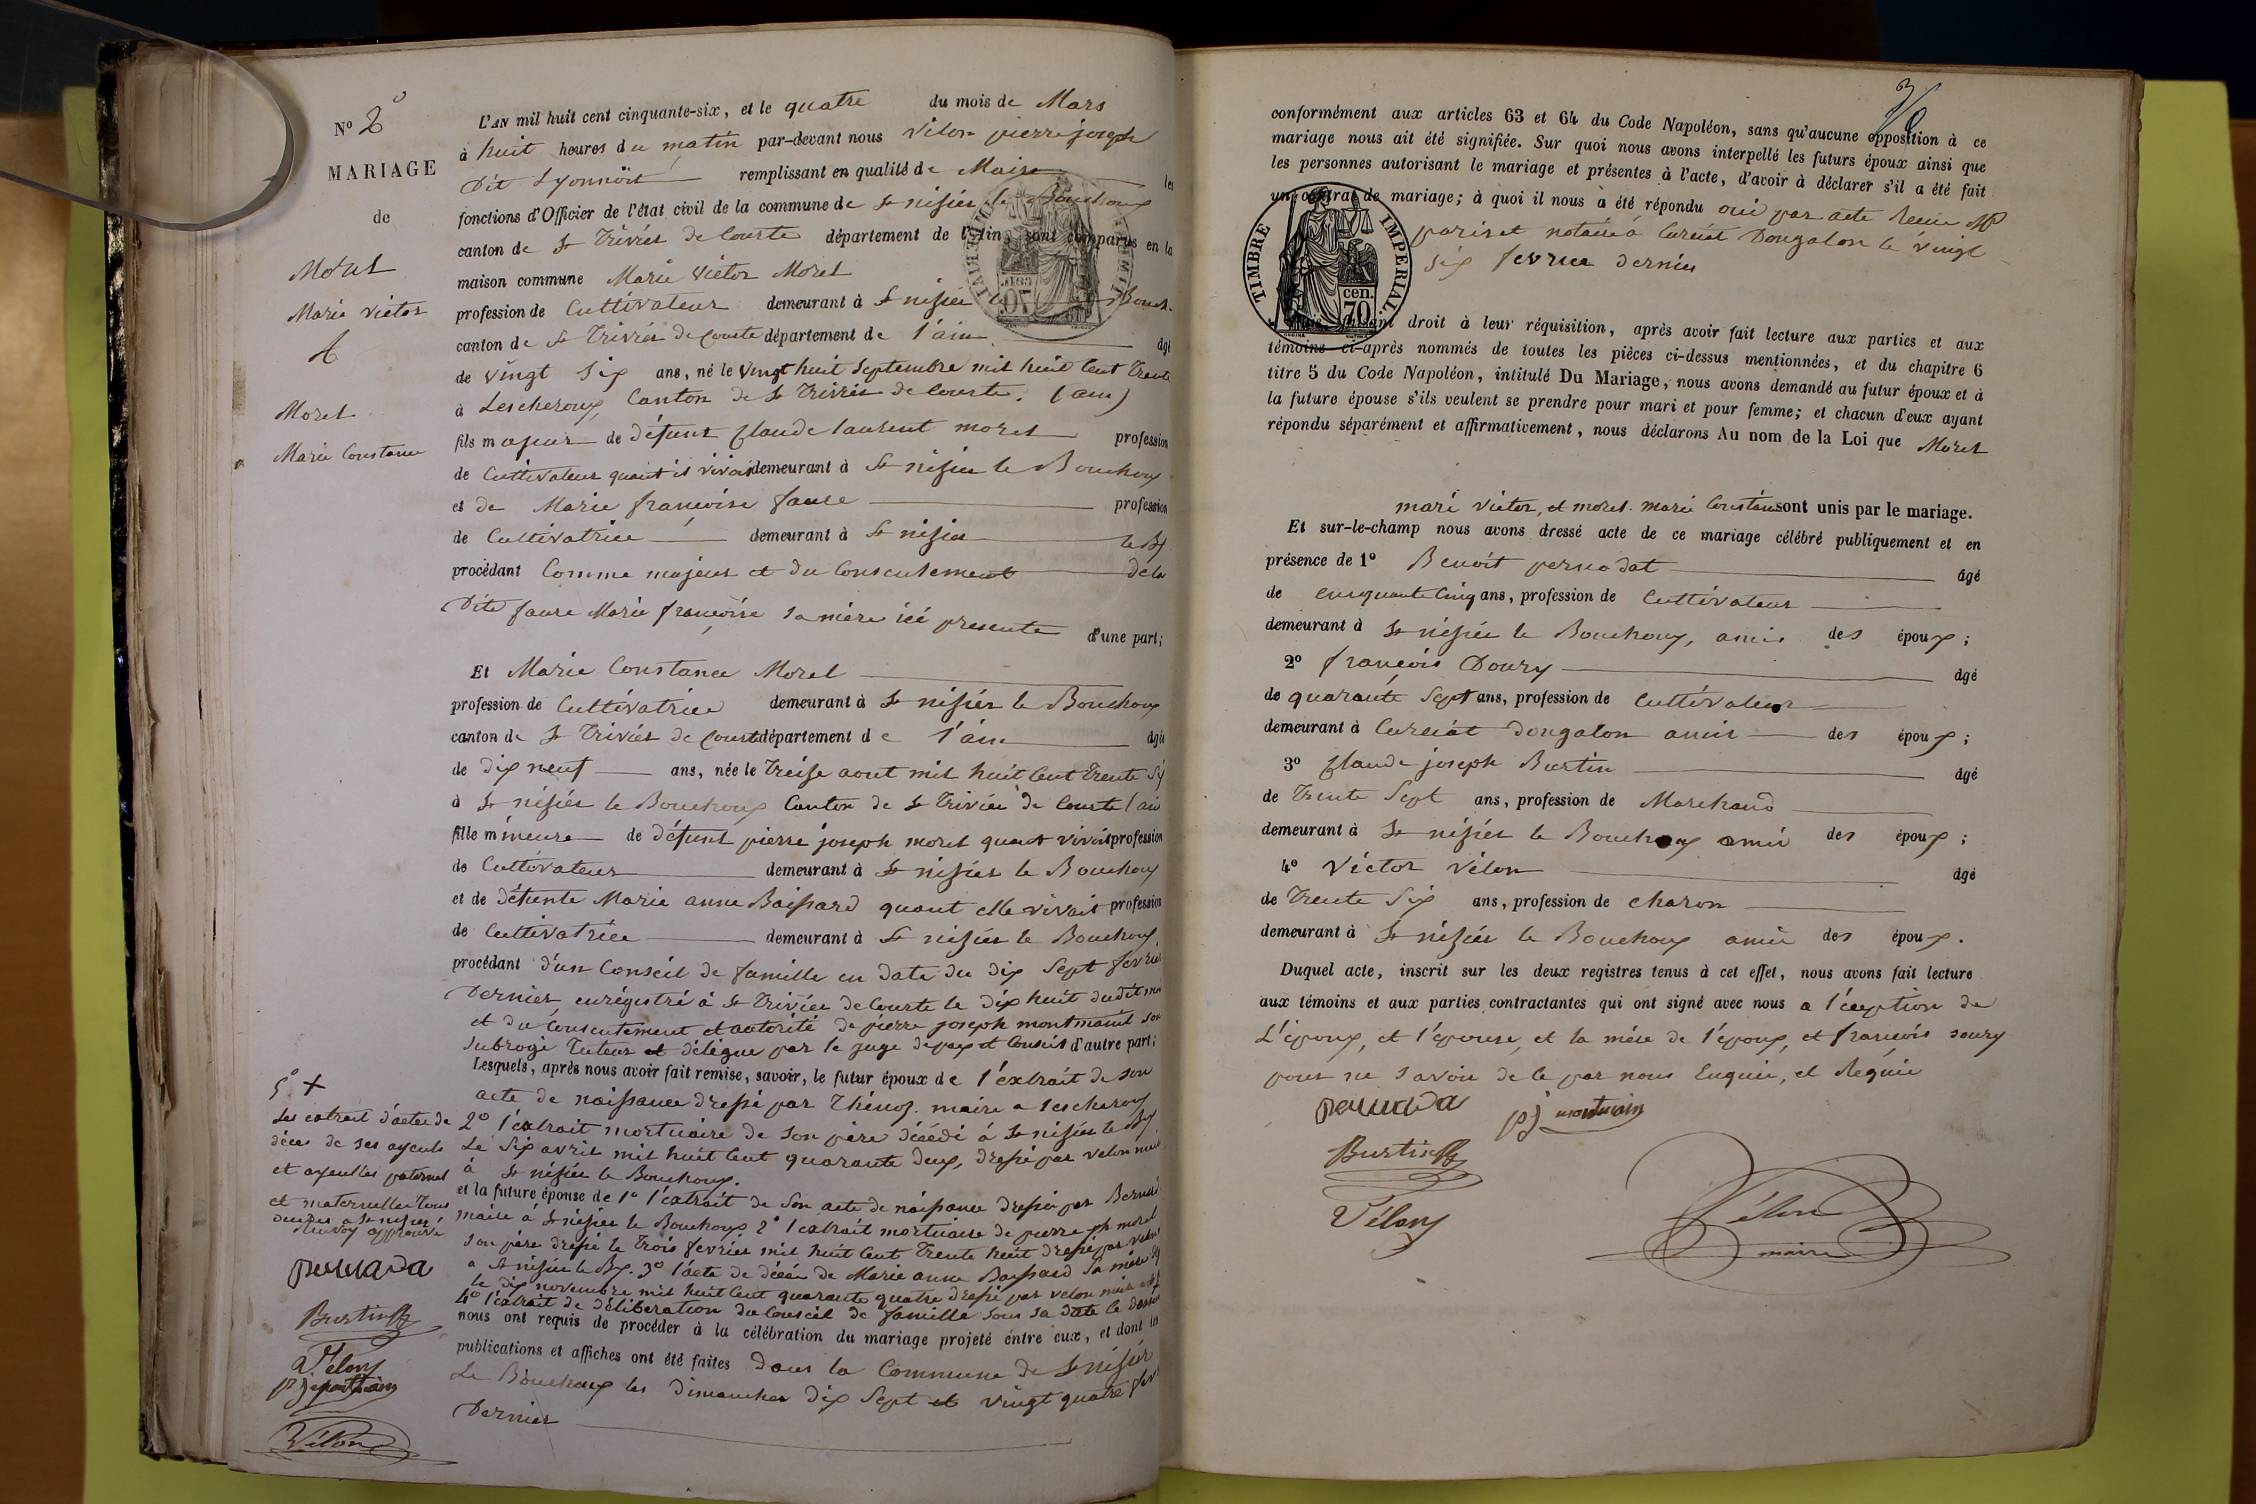 N° 2
MARIAGE
de
Morel
Marie Victor
&
Morel
Marie Constance
L'AN mil huit cent cinquante-six, et le quatre du mois de Mars
à huit heures du matin par-devant nous Vélon pierre joseph
Dit Lyonnois remplissant en qualité de Maire les
fonctions d'Officier de l'état civil de la commune de St nisier le Bouchoux
canton de St Trivier de Courte département de l'Ain, sont comparus en la
maison commune Marie Victor Morel
profession de Cultivateur demeurant à St nisier le Bouch.
canton de St Trivier de Courte département de l'ain âgé
de vingt six ans, né le vingt huit Septembre mil huit Cent Trente
à Lescheroux Canton de St Trivier de Courte. (ain)
fils majeur de défunt Claude laurent morel profession
de Cultivateur quant il vivait demeurant à St nisier le Bouchoux
et de Marie françoise faure profession
de Cultivatrice demeurant à St nisier le Bx
procédant Comme majeur et du Consentement de la
Dite faure Marie françoise sa mère ici presente d'une part;
Et Marie Constance Morel
profession de Cultivatrice demeurant à St nisier le Bouchoux
canton de St Trivier de Courte département de l'ain âgée
de dix neuf ans, née le Treise aout mil huit Cent Trente Six
à St nisier le Bouchoux Canton de St Trivier de Courte (ain
fille mineure de défunt pierre joseph morel quant vivait profession
de Cultivateur demeurant à St nisier le Bouchoux
et de défunte Marie anne Baissard quant elle vivait profession
de Cultivatrice demeurant à St nisier le Bouchoux,
procédant d'un Conseil de famille en date du dix Sept fevrier
Dernier enrégistré à St Trivier de Courte le dix huit dudit moi
et du Consentement et autorité de pierre joseph montmain son
subrogé Tuteur et délégué par le juge de paix et Conseil d'autre part;
Lesquels, après nous avoir fait remise, savoir, le futur époux de l'extrait de son
acte de naissance dressé par Thénoz. maire a Lescheroux
2° l'extrait mortuaire de son père décédé à St nisier le Bx
Le Six avril mil huit Cent quarante deux, dressé par velon maire
à St nisier le Bouchoux.
et la future épouse de 1° l'extrait de son acte de naissance dressé par Bernard
maire à St nisier le Bouchoux 2° l'extrait mortuaire de pierre jph morel
son père dressé le Trois fevrier mil huit Cent Trente huit dressé par velon
a St nisier le Bx. 3° l'acte de décès de Marie anne Baissard sa mère
le dix novembre mil huit Cent quarante quatre dressé par velon maire
4° l'extrait de délibération du Conseil de famille sous sa date ci dessus
nous ont requis de procéder à la célébration du mariage projeté entre eux, et dont les
publications et affiches ont été faites dans la Commune de St nisier
Le Bouchoux les dimanches dix Sept et vingt quatre fevr
Dernier
5° +
Les extrait d'actes de
décès de ses ayeuls
et ayeulles paternel
et maternelles Tous
décédés a St nisier
Renvoy approuvé
pernada
Burtin
Vélon
pj montmain
Vélon
conformément aux articles 63 et 64 du Code Napoléon, sans qu'aucune opposition à ce
mariage nous ait été signifiée. Sur quoi nous avons interpellé les futurs époux ainsi que
les personnes autorisant le mariage et présentes à l'acte, d'avoir à déclarer s'il a été fait
un contrat de mariage; à quoi il nous a été répondu oui par acte Recu Me
pariset notaire à Curciat Dongalon le vingt
six fevrier dernier
TIMBRE IMPERIAL
70 cen.
faisant droit à leur réquisition, après avoir fait lecture aux parties et aux
témoins ci-après nommés de toutes les pièces ci-dessus mentionnées, et du chapitre 6
titre 5 du Code Napoléon, intitulé Du Mariage, nous avons demandé au futur époux et à
la future épouse s'ils veulent se prendre pour mari et pour femme; et chacun d'eux ayant
répondu séparément et affirmativement, nous déclarons Au nom de la Loi que Morel
mari victor, et morel. marie Constance sont unis par le mariage.
Et sur-le-champ nous avons dressé acte de ce mariage célébré publiquement et en
présence de 1° Benoit pernodat âgé
de cinquante Cinq ans, profession de Cultivateur
demeurant à St nisier le Bouchoux, amis des époux;
2° françois Doury âgé
de quarante Sept ans, profession de Cultivateur
demeurant à Curciat dongalon amis des époux;
3° Claude joseph Burtin âgé
de Trente Sept ans, profession de Marchand
demeurant à St nisier le Bouchoux ami des époux;
4° Victor Vélon âgé
de Trente Six ans, profession de charon
demeurant à St nisier le Bouchoux amis des époux.
Duquel acte, inscrit sur les deux registres tenus à cet effet, nous avons fait lecture
aux témoins et aux parties contractantes qui ont signé avec nous a l'éxeption de
L'époux, et l'épouse, et la mère de l'époux, et françois doury
pour ne savoir de ce par nous Enquis, et Requis
pernada pj montmain
Burtin
Vélon
Vélon
maire